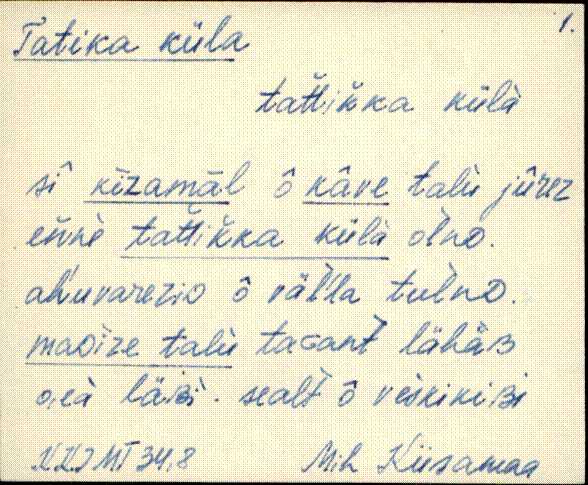 Tatika küla
1.
tat̆tik̆ka külà
sî kīzamāl ô kâve talù jûrez
en̆nè tat̆tik̆ka külà olno.
ahuvarezio ô väl̆la tulno.
madize talù tagant lähäb
ojà läbi. sealt ô veskikivi
KKI MT 34,8
Mih Kiisamaa